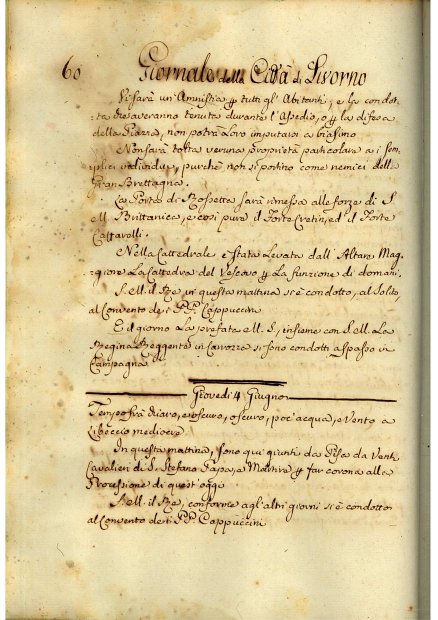 60 Giornale della Città di Livorno
Vi sarà un'Amnistia p tutti gl'Abitanti, e la condot-
-ta che averanno tenuta durante l'Assedio, o p la difesa
della Piazza, non potrà loro imputarsi a biasimo
Non sarà tolta veruna proprietà particolare a i sem-
plici individui, purchè non si portino come nemici della
Gran Brettagna.
La Porta di Rossetta sarà rimessa alle forze di S.
M. Brittanica, e così pure il Forte Cretin, ed il Forte
Caffarelli.
Nella Cattedrale è stata levata dall'Altare Mag-
-giore la Cattedra del Vescovo p la funzione di domani.
S. M. il Re, in questa mattina si è condotto, al solito,
al Convento de i PP. Cappuccini
E il giorno la prefata M. S., insieme con S. M. la
Regina Reggente in Carrozza si sono condotti a spasso in
Campagna
Giovedì 4 Giugno
Tempo frà chiaro, e oscuro, oscuro, poc'acqua, e Vento a
Libeccio mediocre
In questa mattina, sono qui giunti da Pisa da Venti
Cavalieri di S. Stefano Papa, e Martire p far corona alla
Processione di quest'oggi
S. M. il Re, conforme agl'altri giorni si è condotto
al Convento de i PP. Cappuccini